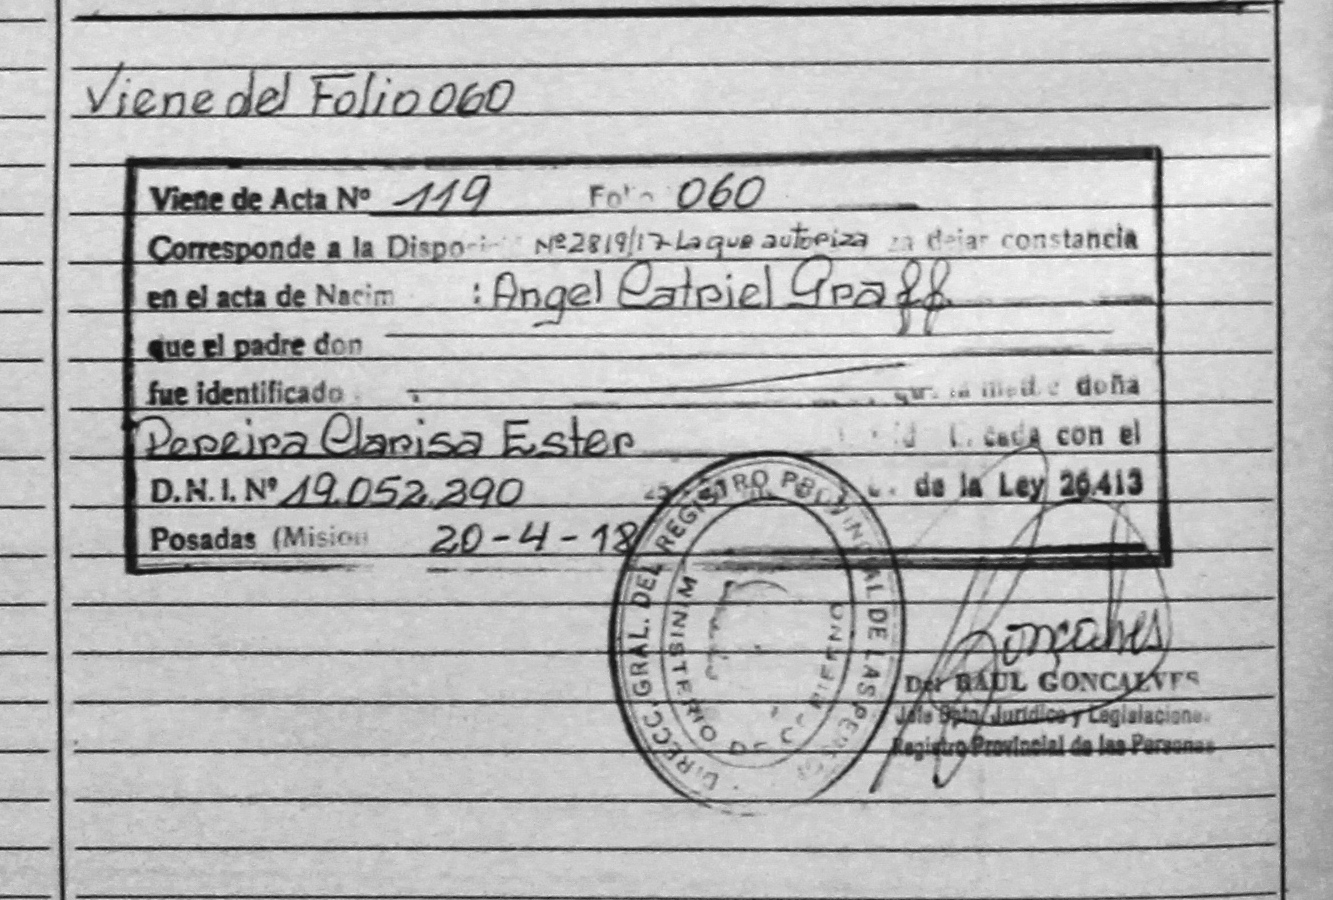 Viene del Folio 060
Viene de Acta Nº 119 Folio 060
Corresponde a la Dispo Nº 2819/17 La que autoriza dejar constancia
en el acta de Nacim : Angel Catriel Graff
que el padre don
fue identificado que la madre doña
Pereira Clarisa Ester con el
D.N.I. Nº 19.052.290 de la Ley 26.413
Posadas (Mision 20-4-18
DIRECC. GRAL. DEL REGISTRO PROVINCIAL DE LAS PERS
MINISTERIO DE
RAUL GONCALVES
Jefe Dpto. Jurídico y Legislacione
Registro Provincial de las Personas